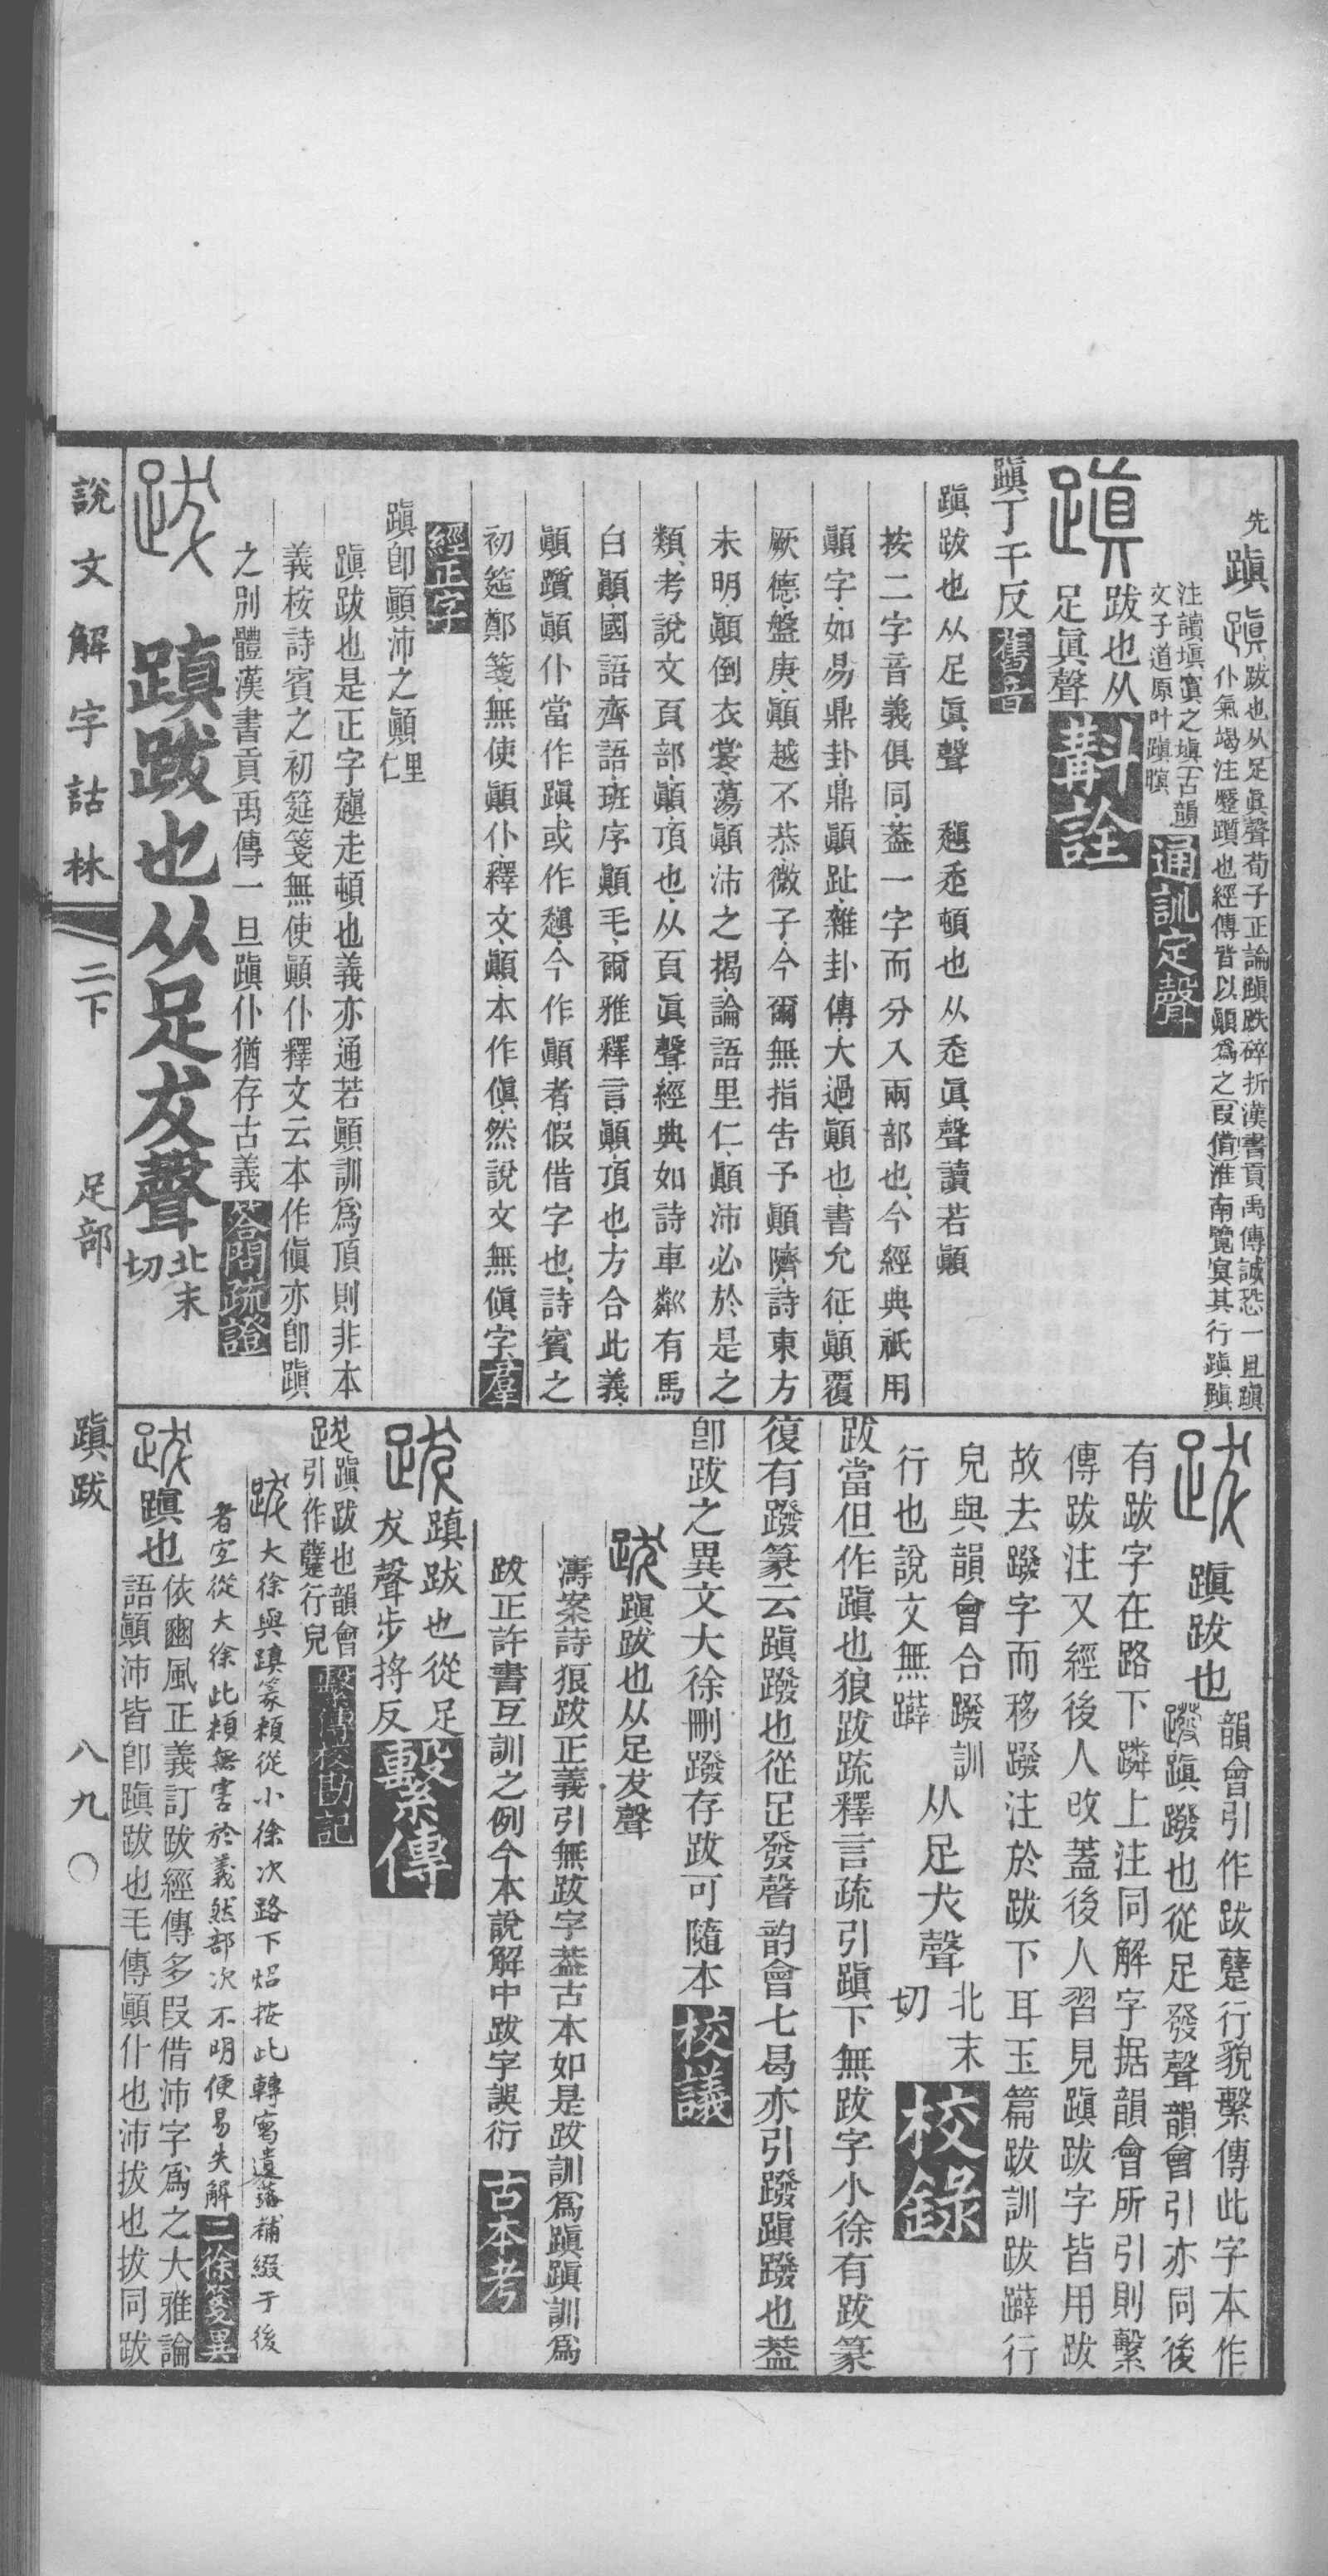 先蹎
跋也从足眞聲荀子正論蹎跌碎折漢書貢禹傳誠恐一旦蹎
仆氣竭注蹙躓也經傳皆以顚爲之(叚借)淮南覽冥其行蹎蹎
注讀塡寘之塡(古韻)
文子道原叶蹎瞑通訓定聲
蹎 跋也从
足眞聲斠詮
蹎丁千反舊音
蹎跋也从足眞聲 趚走頓也从走眞聲讀若顚
按二字音義俱同蓋一字而分入兩部也今經典祇用
顚字如易鼎卦鼎顚趾雜卦傳大過顚也書允征顚覆
厥德盤庚顚越不恭微子今爾無指告予顚隮詩東方
未明顚倒衣裳蕩顚沛之揭論語里仁顚沛必於是之
類考說文頁部顚頂也从頁眞聲經典如詩車鄰有馬
白顚國語齊語班序顚毛爾雅釋言顚頂也方合此義
顚躓顚仆當作蹎或作趚今作顚者假借字也詩賓之
初筵鄭箋無使顚仆釋文顚本作傎然說文無傎字羣
經正字
蹎卽顚沛之顚里仁
蹎跋也是正字趚走頓也義亦通若顚訓爲頂則非本
義桉詩賓之初筵箋無使顚仆釋文云本作傎亦卽蹎
之別體漢書貢禹傳一旦蹎仆猶存古義答問疏證
跋 蹎跋也从足犮聲北末切
說文解字詁林 二下 足部 蹎跋 八九〇
跋 蹎跋也韻會引作跋躠行貌繫傳此字本作
蹳蹎蹳也從足發聲韻會引亦同後
有跋字在路下蹸上注同解字据韻會所引則繫
傳跋注又經後人改蓋後人習見蹎跋字皆用跋
故去蹳字而移蹳注於跋下耳玉篇跋訓跋躃行
皃與韻會合蹳訓
行也說文無躃从足犬聲北末切校錄
跋當但作蹎也狼跋疏釋言疏引蹎下無跋字小徐有跋篆
復有蹳篆云蹎蹳也從足發聲韵會七曷亦引蹳蹎蹳也葢
卽跋之異文大徐刪蹳存跋可隨本校議
跋蹎跋也从足犮聲
濤案詩狼跋正義引無跋字葢古本如是跋訓爲蹎蹎訓爲
跋正許書互訓之例今本說解中跋字誤衍 古本考
跋 蹎跋也從足
犮聲步捋反繫傳
跋蹎跋也韻會
引作躠行皃繫傳校勘記
跋大徐與蹎篆類從小徐次路下炤按此轉寫遺落補綴于後
者宜從大徐此類無害於義然部次不明便易失解二徐箋異
跋 蹎也依豳風正義訂跋經傳多叚借沛字爲之大雅論
語顚沛皆卽蹎跋也毛傳顚仆也沛拔也拔同跋